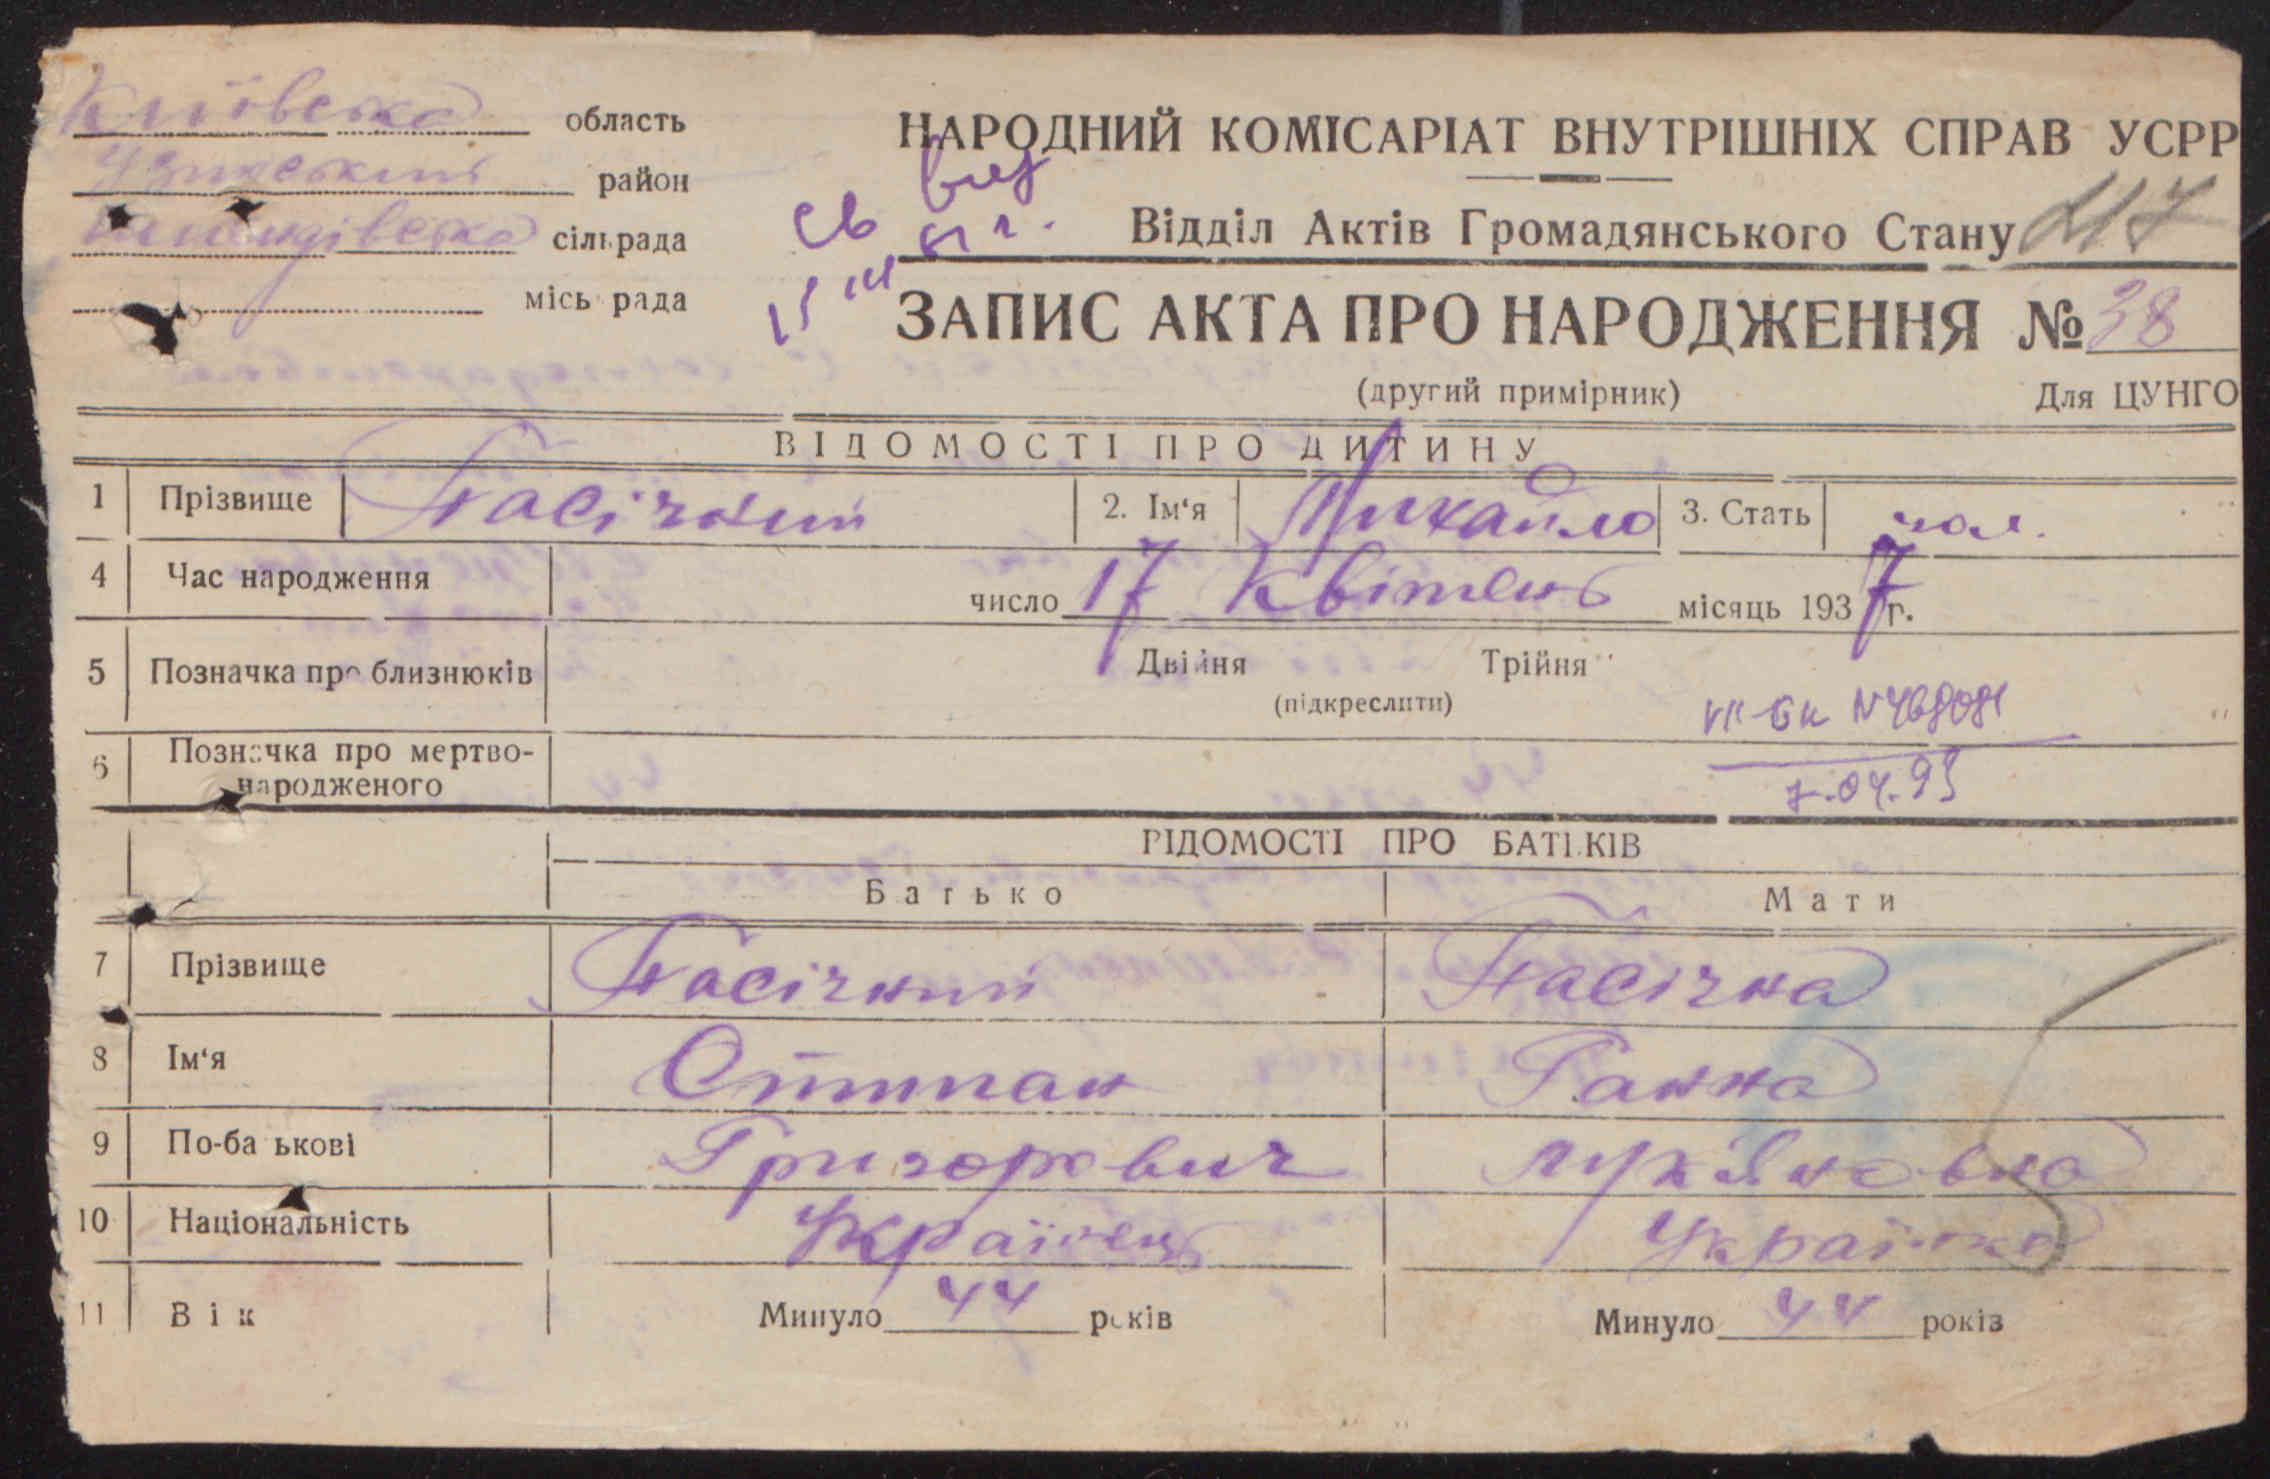 Київська область
Узинський район
сільрада
місьрада
НАРОДНИЙ КОМІСАРІАТ ВНУТРІШНІХ СПРАВ УСРР
Відділ Актів Громадянського Стану
ЗАПИС АКТА ПРО НАРОДЖЕННЯ № 38
(другий примірник) Для ЦУНГО
ВІДОМОСТІ ПРО ДИТИНУ
1 Прізвище Пасічний 2. Ім‘я Михайло 3. Стать чол.
4 Час народження число 17 Квітень місяць 1937 р.
5 Позначка про близнюків Двійня Трійня
(підкреслити)
6 Позначка про мертво-
народженого
7.04.93
ВІДОМОСТІ ПРО БАТЬКІВ
Батько Мати
7 Прізвище Пасічний Пасічна
8 Ім‘я Степан Ганна
9 По-батькові Григорович Лук'яновна
10 Національність Українець Українка
11 Вік Минуло 44 років Минуло 44 років